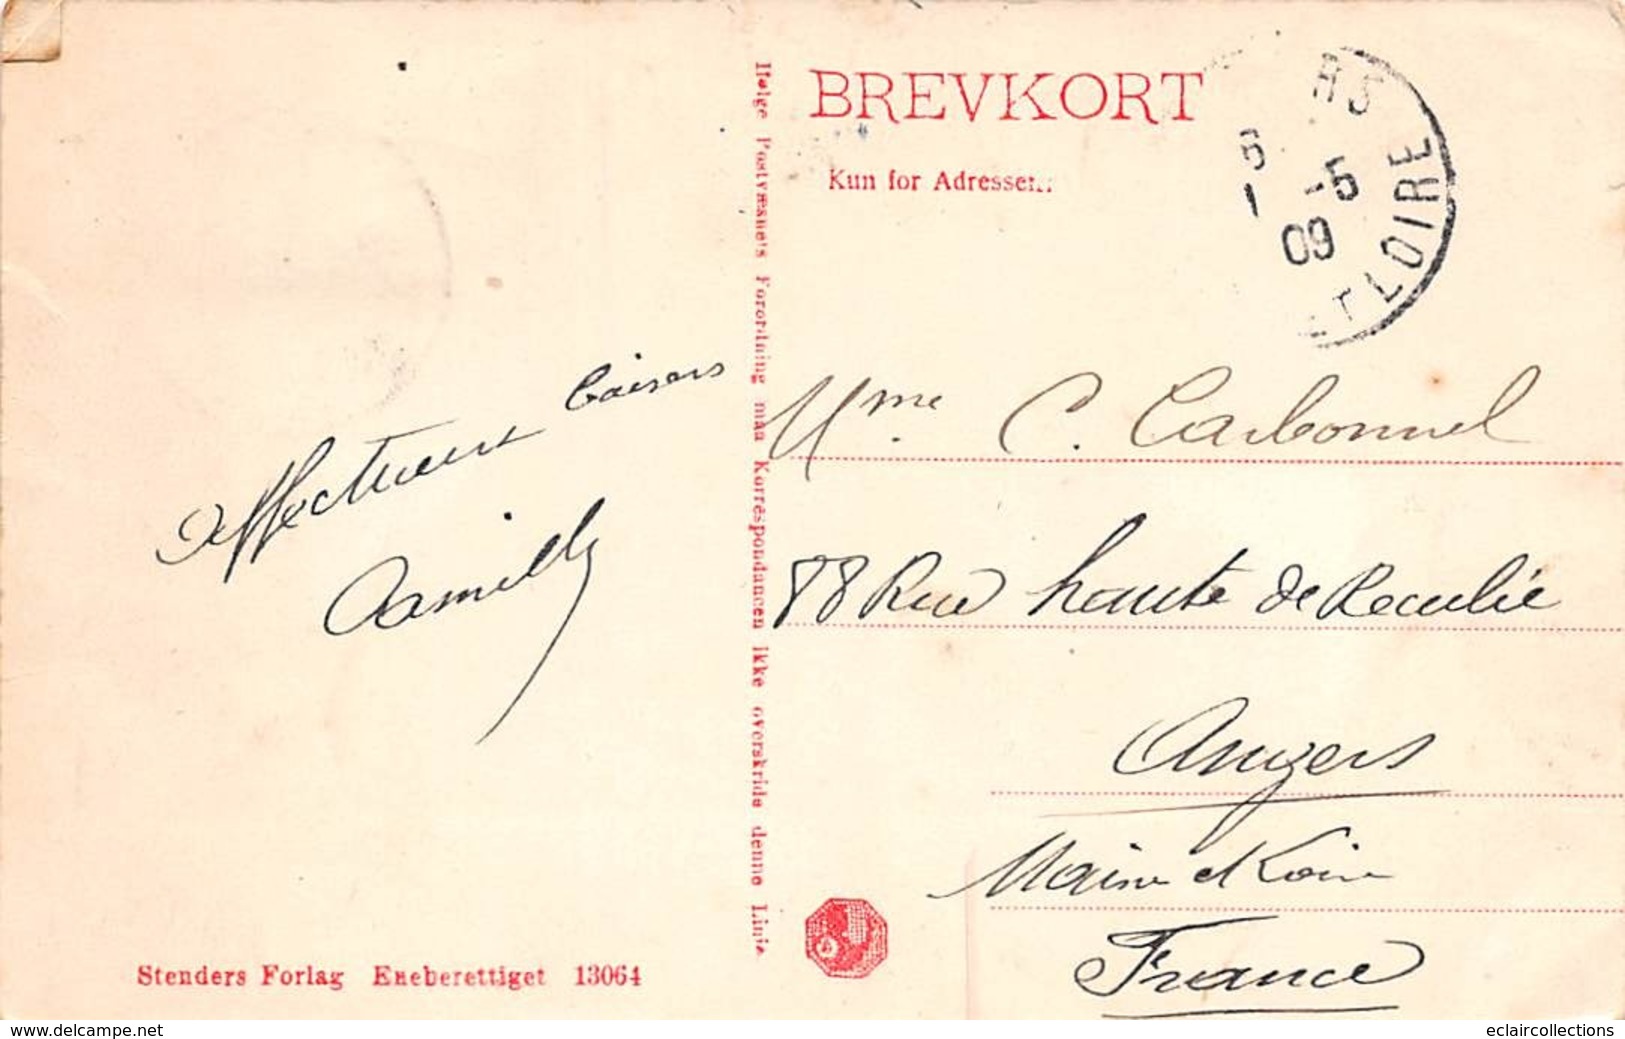 BREVKORT
Kun for Adressen.
Ifølge Postvæsnets Forordning maa Korrespondancen ikke overskride denne Linie
RS
ET LOIRE
6
1 -5
09
Affectueux baisers
Camille
Mme C. Carbonnel
88 Rue haute de Reculée
Angers
Maine et Loire
France
Stenders Forlag Eneberettiget 13064
www.delcampe.net
eclaircollections